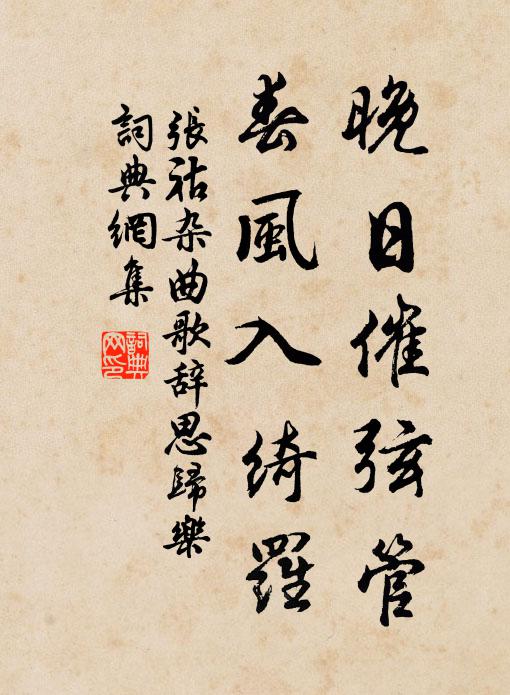 晚日催弦管
春风入绮羅
張祜杂曲歌辞思歸樂
詞典網集
詞典网印